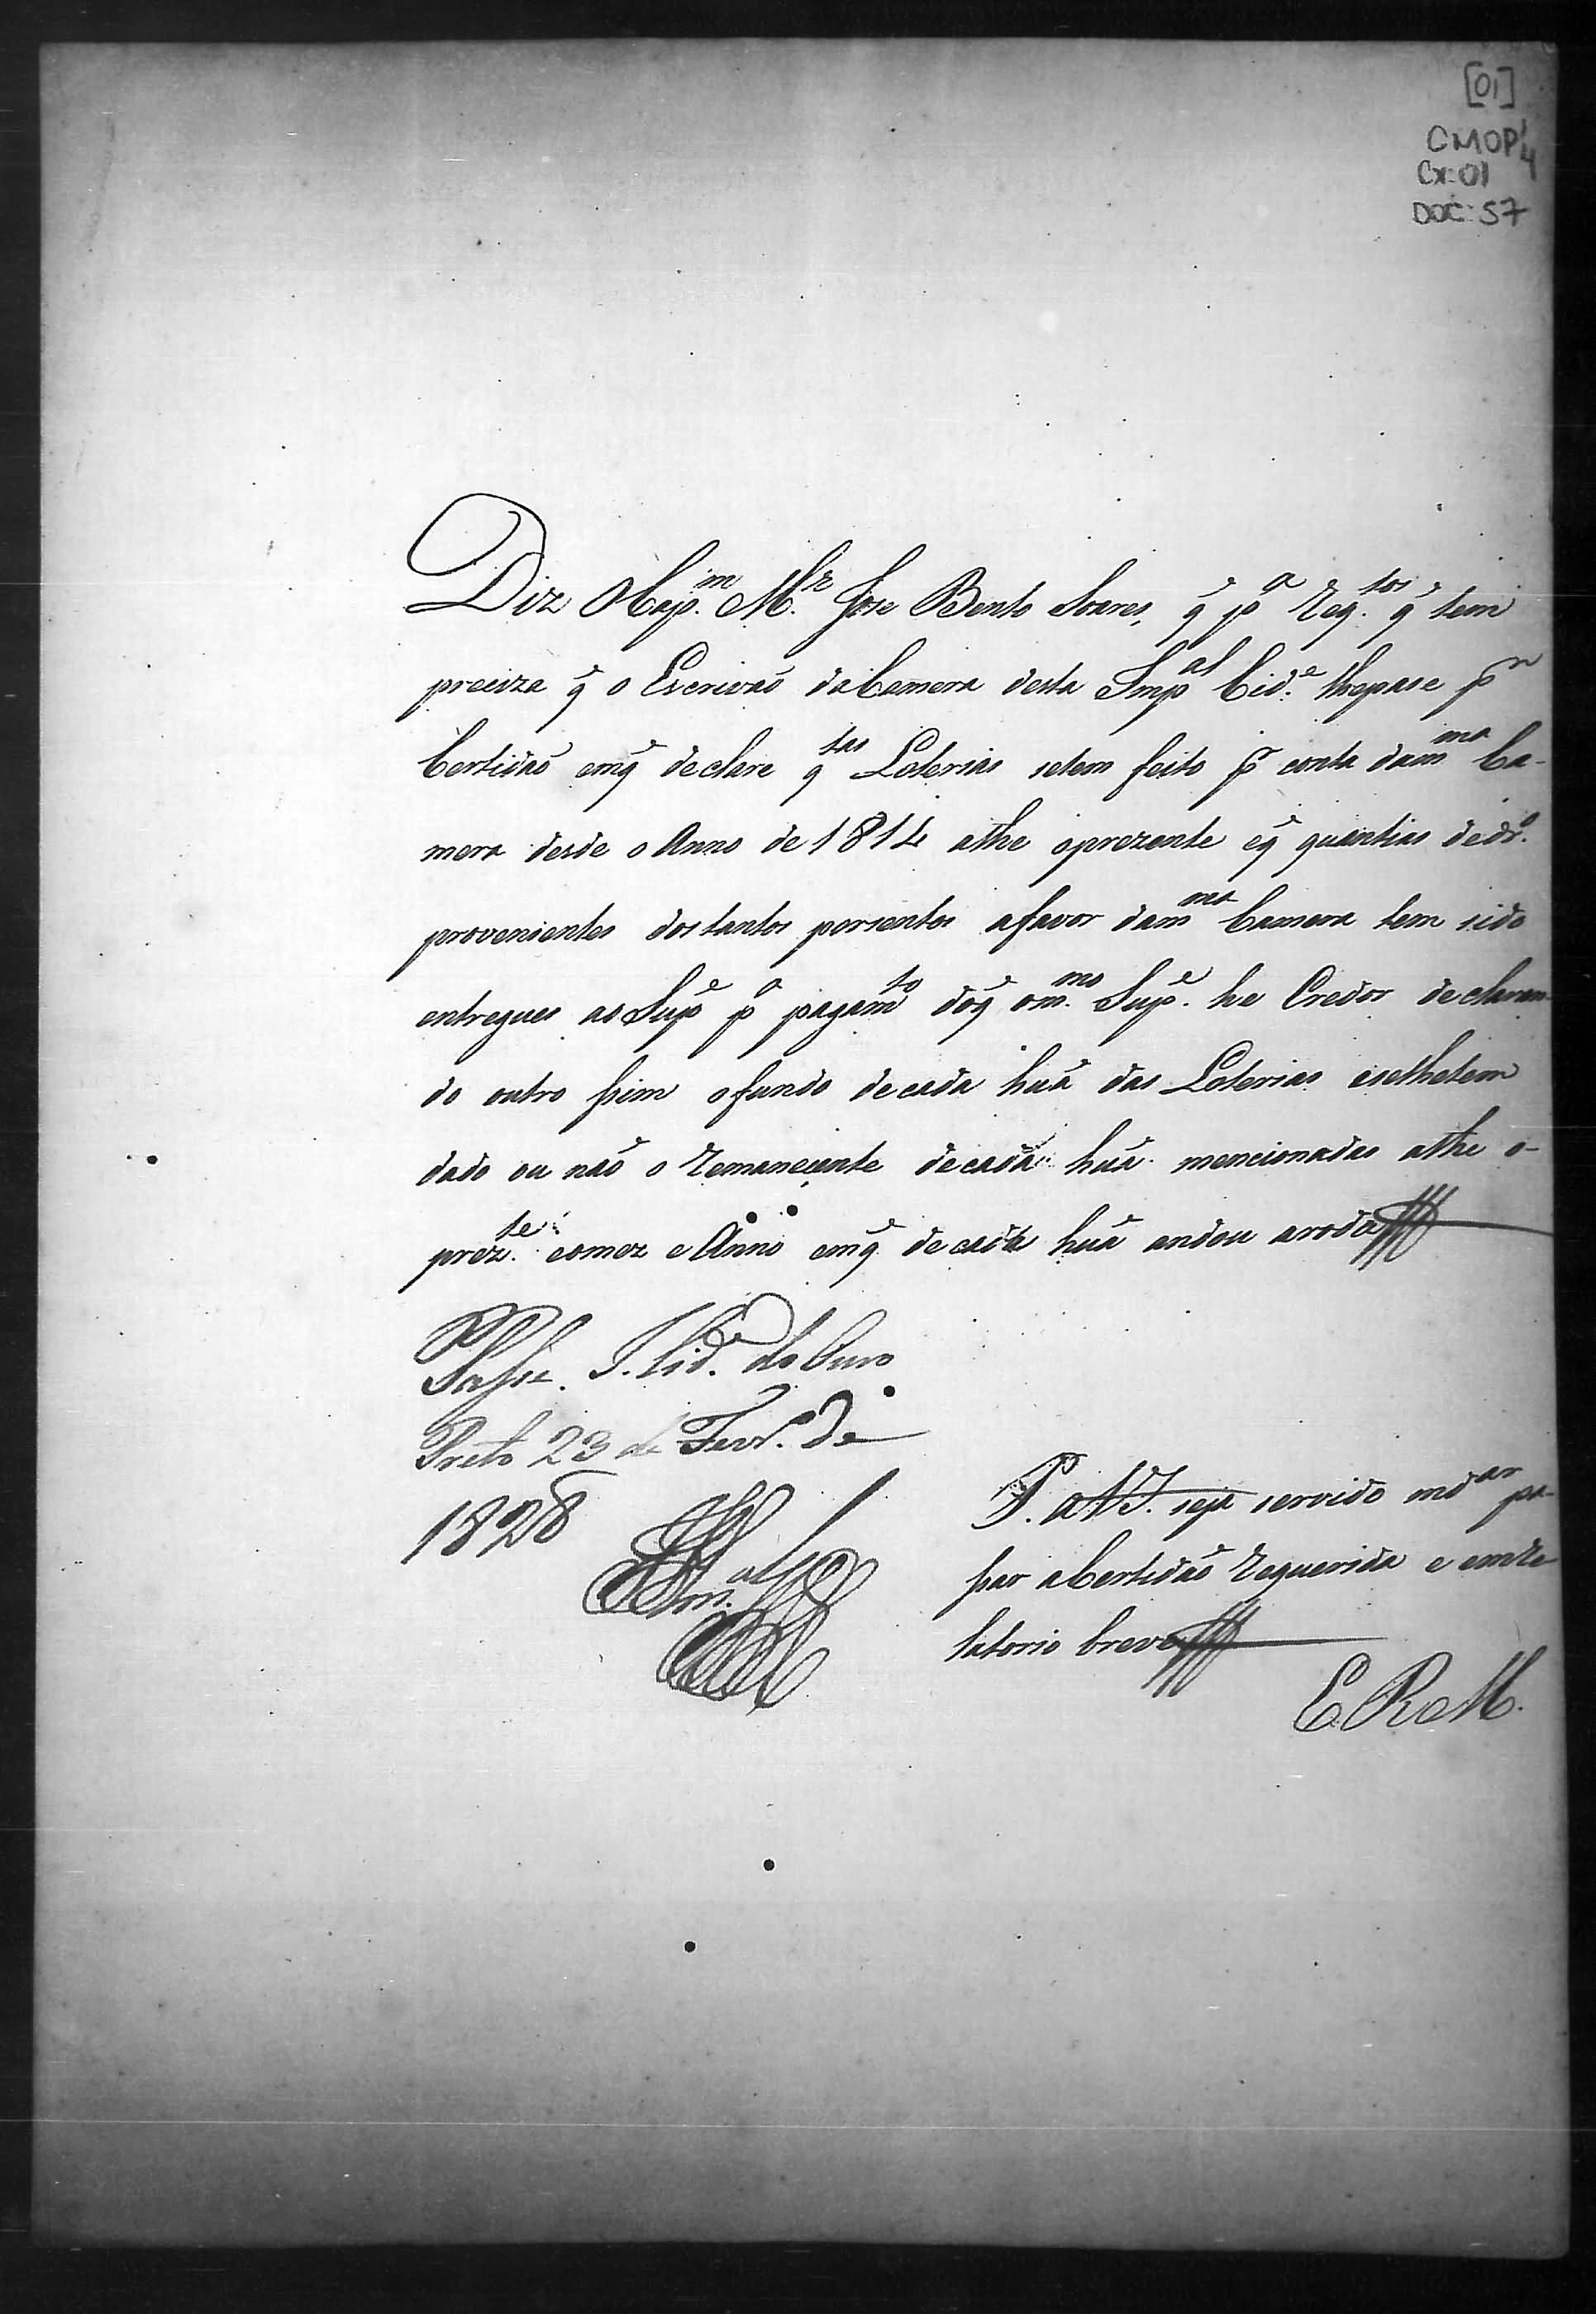 [01]
CMOP 1/4
Cx: 01
DOC: 57
Diz O Cap.m M.r Jose Bento Soares, q̃ p.a req.tos q̃ tem
preciza q̃ o Escrivaõ da Camera desta Imp.al Cid.e lhe pase p.r
Certidaõ em q̃ declare q.tas Loterias se tem feito p.r conta da m.ma Ca-
mera desde o Anno de 1814 athe o prezente e q̃ quantias de dr.o
provenientes dos tantos porsentos a favor da m.ma Camera tem sido
entregues ao Sup.e p.a pagam.to do q̃ o m.mo Sup.e he Credor declaran-
do outro ssim o fundo de cada huã das Loterias e se lhe tem
dado ou naõ o remanecente de cada huã mencionadas athe o-
prez.te e o mez e Anno em q̃ de cada huã andou a roda
Passe. I. Cid.e do Ouro
Preto 23 de Fevr.o de
1828
P. a V. S. seja servido md.ar pa-
ssar a Certidaõ requerida e em re-
latorio breve
E. R. M.